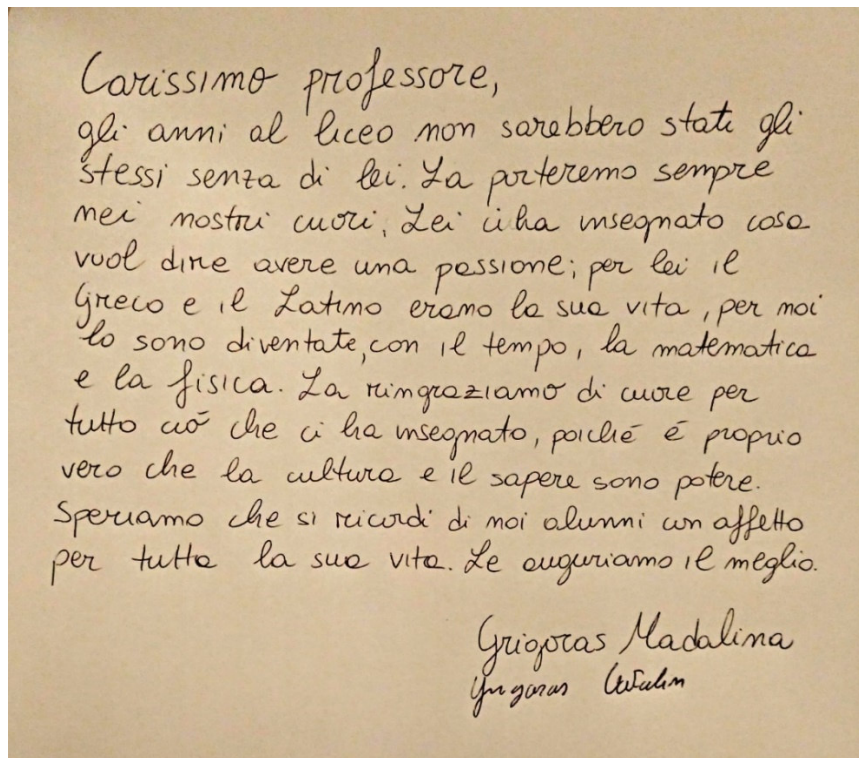 Carissimo professore,
gli anni al liceo non sarebbero stati gli
stessi senza di lei. La porteremo sempre
nei nostri cuori. Lei ci ha insegnato cosa
vuol dire avere una passione; per lei il
Greco e il Latino erano la sua vita, per noi
lo sono diventate, con il tempo, la matematica
e la fisica. La ringraziamo di cuore per
tutto ció che ci ha insegnato, poiché é proprio
vero che la cultura e il sapere sono potere.
Speriamo che si ricordi di noi alunni con affetto
per tutta la sua vita. Le auguriamo il meglio.
Grigoras Madalina